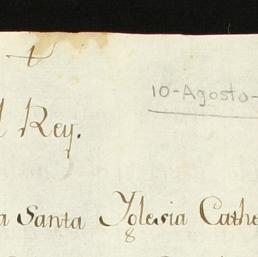 10-Agosto-
Rey.
a Santa Yglesia Cathe